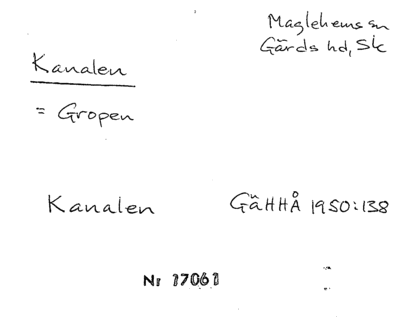 Maglehems sn
Gärds hd, Sk
Kanalen
= Gropen
Kanalen GäHHÅ 1950:138
Nr 17061